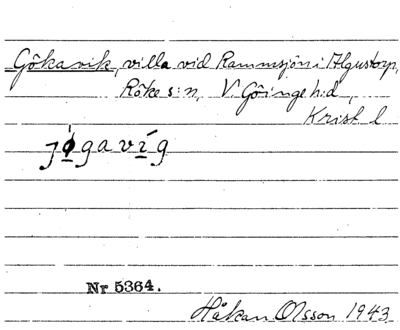 Gökavik, villa vid Rammsjön i Algustorp,
Röke s:n, V. Göinge h:d,
Krist. l
jøgavíg
Nr 5364.
Håkan Olsson 1943.